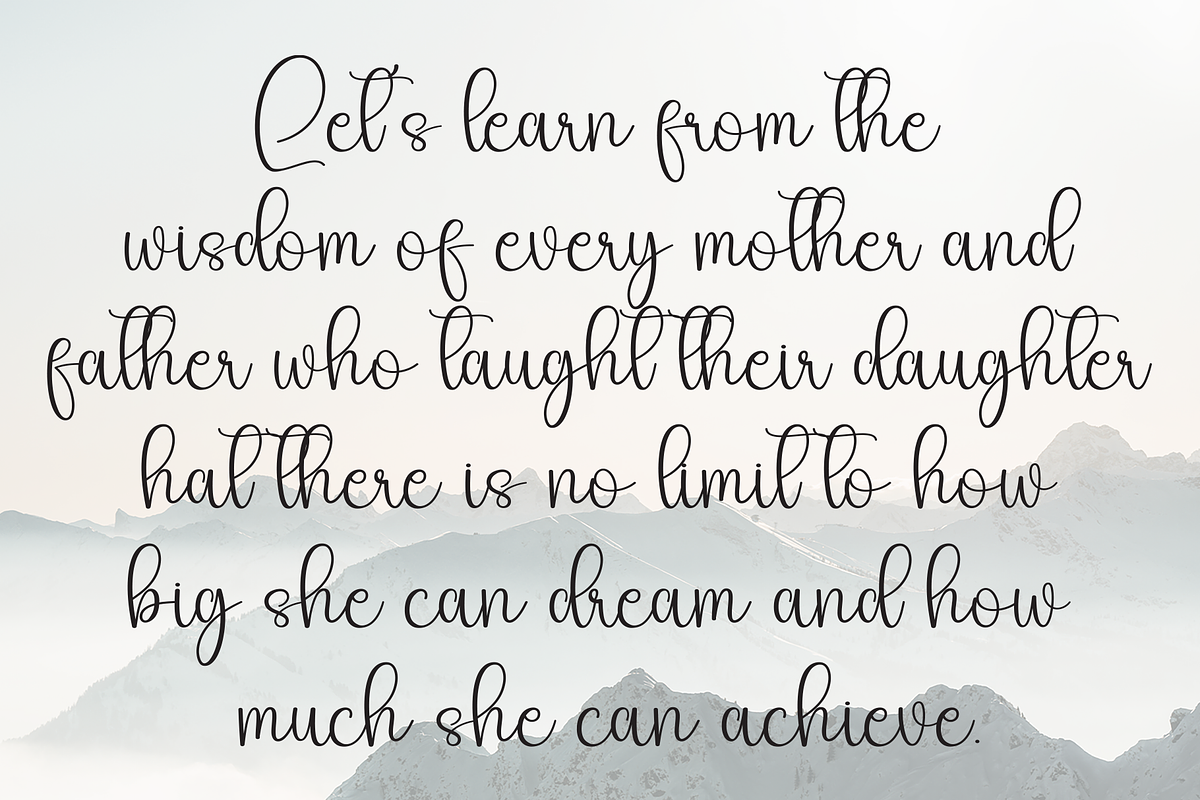 Let's learn from the
wisdom of every mother and
father who taught their daughter
hat there is no limit to how
big she can dream and how
much she can achieve.